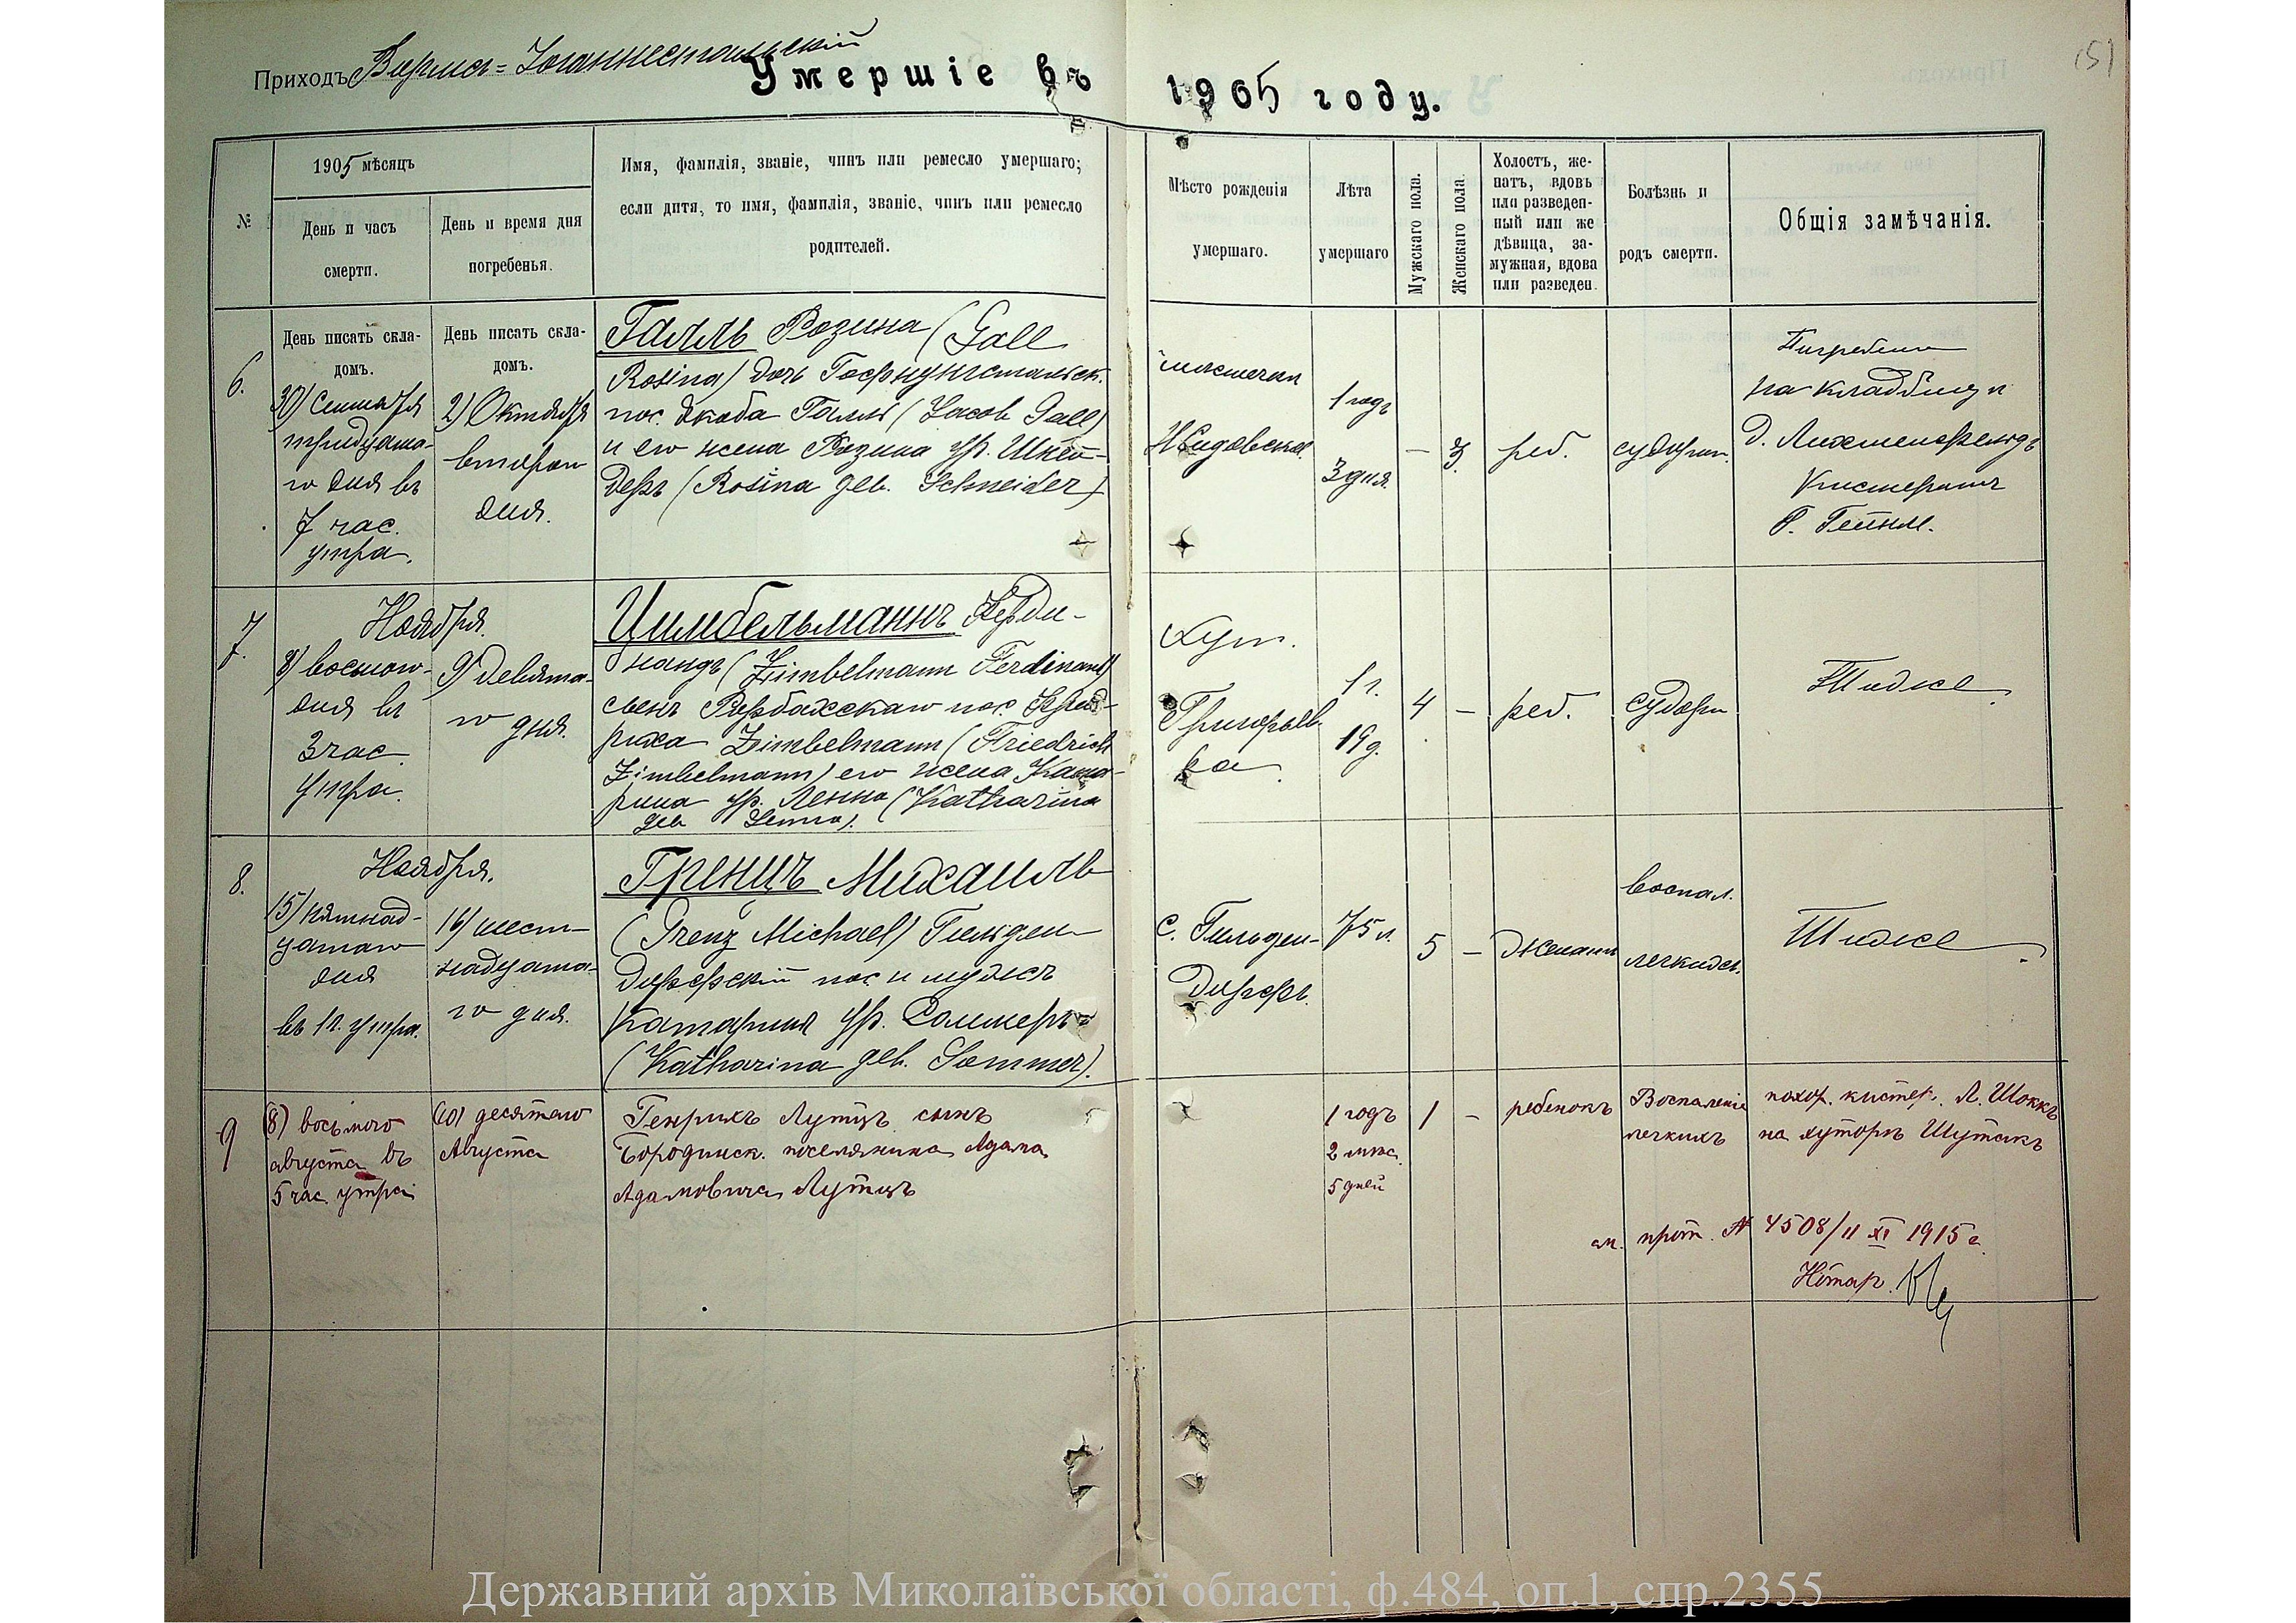 Приходъ Вормсъ-Іоганнестальскій
Умершіе въ 1905 году.
151
№
1905 мѣсяцъ
День и часъ
смерти.
День и время дня
погребенья.
Имя, фамилія, званіе, чинъ или ремесло умершаго;
если дитя, то имя, фамилія, званіе, чинъ или ремесло
родителей.
Мѣсто рожденія
умершаго.
Лѣта
умершаго
Мужскаго пола.
Женскаго пола.
Холостъ, же-
натъ, вдовъ
или разведен-
ный или же
дѣвица, за-
мужная, вдова
или разведен.
Болѣзнь и
родъ смерти.
Общія замѣчанія.
6.
День писать скла-
домъ.
30) Сентября
тридцата-
го дня въ
7 час.
утра.
День писать скла-
домъ.
2) Октября
второго
дня.
Галль Розина (Gall
Rosina) дочь Гофнунгстальск.
пос. Якоба Галль (Jacob Gall)
и его жена Розина ур. Шней-
деръ (Rosina geb. Schneider)
1 годъ
3 дня.
— 3.
реб.
судорги.
Погребена
на кладбищѣ
д. Лихтенфельдъ
Кистеромъ
Г. Гейнм.
7.
Ноября.
8) восьмого
дня въ
3 час.
утра.
9) девята-
го дня.
Цимбельманнъ Ферди-
нандъ (Zimbelmann Ferdinand)
сынъ Рорбахскаго пос. Фред-
риха Zimbelmann (Friedrich
Zimbelmann) его жена Ката-
рина ур. Ленна (Katharina
geb Lenna).
Хут.
Григорьев-
ка.
1 г.
19 д.
4 —
реб.
судорги
Тидже
8.
Ноября.
15) пятнад-
цатаго
дня
въ 1 ч. утра.
16) шест-
надцата-
го дня.
Гренцъ Михаилъ
(Grenz Michael) Гильден-
дорфскій пос. и мужъ
Катарина ур. Соммеръ
(Katharina geb. Sommer).
с. Гильден-
дорфъ.
75 л.
5 —
женатъ
воспал.
легкихъ.
Тидже
9
(8) восьмого
августа въ
5 час. утра
(10) десятаго
Августа
Генрихъ Лутцъ сынъ
Бородинск. поселянина Адама
Адамовича Лутцъ
1 годъ
2 мѣс.
5 дней
1 —
ребенокъ
Воспаленіе
легкихъ
похор. кистер. Л. Шоккъ
на хуторѣ Шутакъ
см. прот. № 4508/11 XI 1915 г.
Державний архів Миколаївської області, ф.484, оп.1, спр.2355